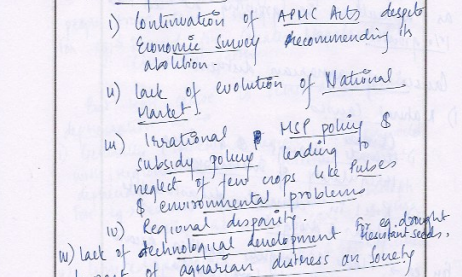 i) Continuation of APMC Acts despite
Economic Survey recommending its
abolition.
ii) lack of evolution of National
Market.
iii) Irrational MSP policy &
subsidy policy leading to
neglect of few crops like Pulses
& environmental problems
iv) Regional disparity.
iv) lack of technological development for eg. drought
resistant seeds.
of agrarian distress on Society